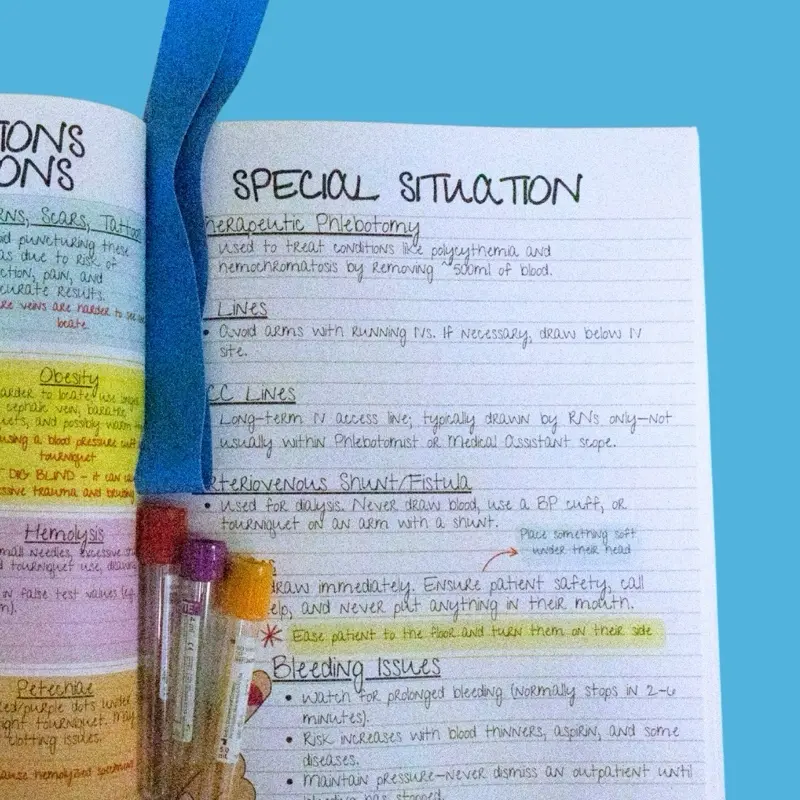 TIONS
ONS
RNS, Scars, Tattoo
oid puncturing these
as due to risk of
ction, pain, and
curate results.
re veins are harder to see
Obesity
arder to locate use
cephalic vein,
uets, and possibly warm
using a blood pressure cuff
tourniquet
DIG BLIND - it can
ssive trauma and
Hemolysis
mall needles, excessive
d tourniquet use,
in false test values
Petechiae
red/purple dots under
ight tourniquet. may
clotting issues.
ause hemolyzed specimen
SPECIAL SITUATION
herapeutic Phlebotomy
used to treat conditions like polycythemia and
hemochromatosis by removing ~500ml of blood.
Lines
• Avoid arms with running IVs. If necessary, draw below IV
site.
CC Lines
Long-term IV access line; typically drawn by RNs only—not
usually within Phlebotomist or Medical Assistant scope.
rteriovenous Shunt/Fistula
• used for dialysis. Never draw blood, use a BP cuff, or
tourniquet on an arm with a shunt.
Place something soft
under their head
draw immediately. Ensure patient safety, call
elp, and never put anything in their mouth.
* Ease patient to the floor and turn them on their side
Bleeding Issues
• Watch for prolonged bleeding (normally stops in 2-6
minutes).
• Risk increases with blood thinners, aspirin, and some
diseases.
• Maintain pressure—never dismiss an outpatient until
bleeding has stopped.